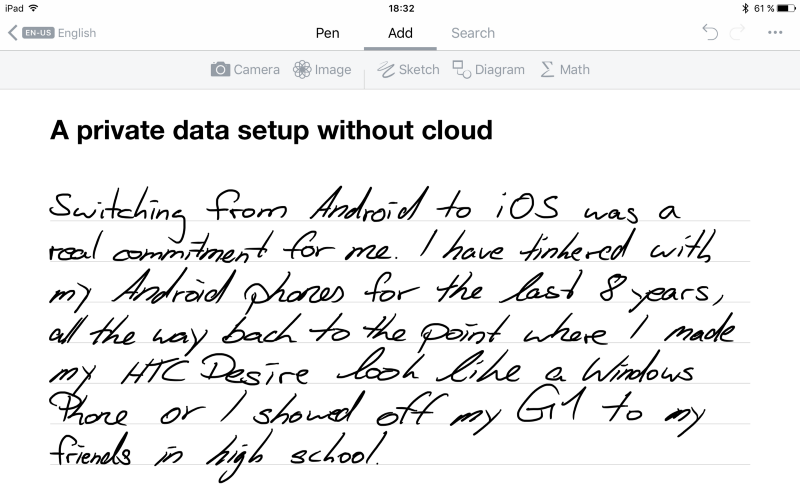 iPad 18:32 61 %
EN-US English Pen Add Search
Camera Image Sketch Diagram Math
A private data setup without cloud
Switching from Android to iOS was a
real commitment for me. I have tinkered with
my Android phones for the last 8 years,
all the way back to the point where I made
my HTC Desire look like a Windows
Phone or I showed off my G1 to my
friends in high school.